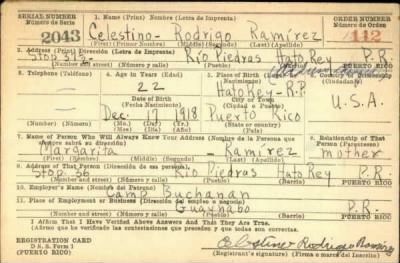 SERIAL NUMBER 1. Name (Print) Nombre (Letra de Imprenta) ORDER NUMBER
Número de Serie Número de Orden
2043 Celestino- Rodrigo Ramírez 442
(First) (Primer Nombre) (Middle) (Segundo) (Last) (Apellido)
2. Address (Print) Dirección (Letra de Imprenta)
Río Piedras Hato Rey P.R.
(Number and street) (Número y calle) (Town) (Pueblo) (Barrio) PUERTO RICO
3. Telephone (Teléfono) 4. Age in Years (Edad) 5. Place of Birth (Nacimiento) 6. Country of Citizenship (Ciudadanía)
22 Hato Rey-R.P. U.S.A.
Date of Birth City or Town
Fecha de Nacimiento (Ciudad o Pueblo)
Dec. 1918 Puerto Rico
(Mo.) (Da.) (Yr.) (State or country)
(Mes) (Día) (Año) (Estado o país)
7. Name of Person Who Will Always Know Your Address (Nombre de la Persona que siempre sabrá su dirección) 8. Relationship of That Person (Parentesco)
Margarita - Ramírez mother
(First) (Nombre) (Middle) (Segundo) (Last) (Apellido)
9. Address of That Person (Dirección de esa persona)
Stop 36 Río Piedras Hato Rey P.R.
(Number and street) (Número y calle) (Town) (Pueblo) (Barrio) PUERTO RICO
10. Employer's Name (Nombre del Patrono)
Camp Buchanan
11. Place of Employment or Business (Dirección del empleo o negocio)
Guaynabo P.R.
(Number and street) (Número y calle) (Town) (Pueblo) (Barrio) PUERTO RICO
I Affirm That I Have Verified Above Answers and That They Are True.
Afirmo que he verificado las contestaciones que preceden y que todas son correctas.
REGISTRATION CARD
D. S. S. Form 1
(PUERTO RICO)
Celestino Rodrigo Ramírez
(Registrant's signature) (Firma o marca del inscrito)